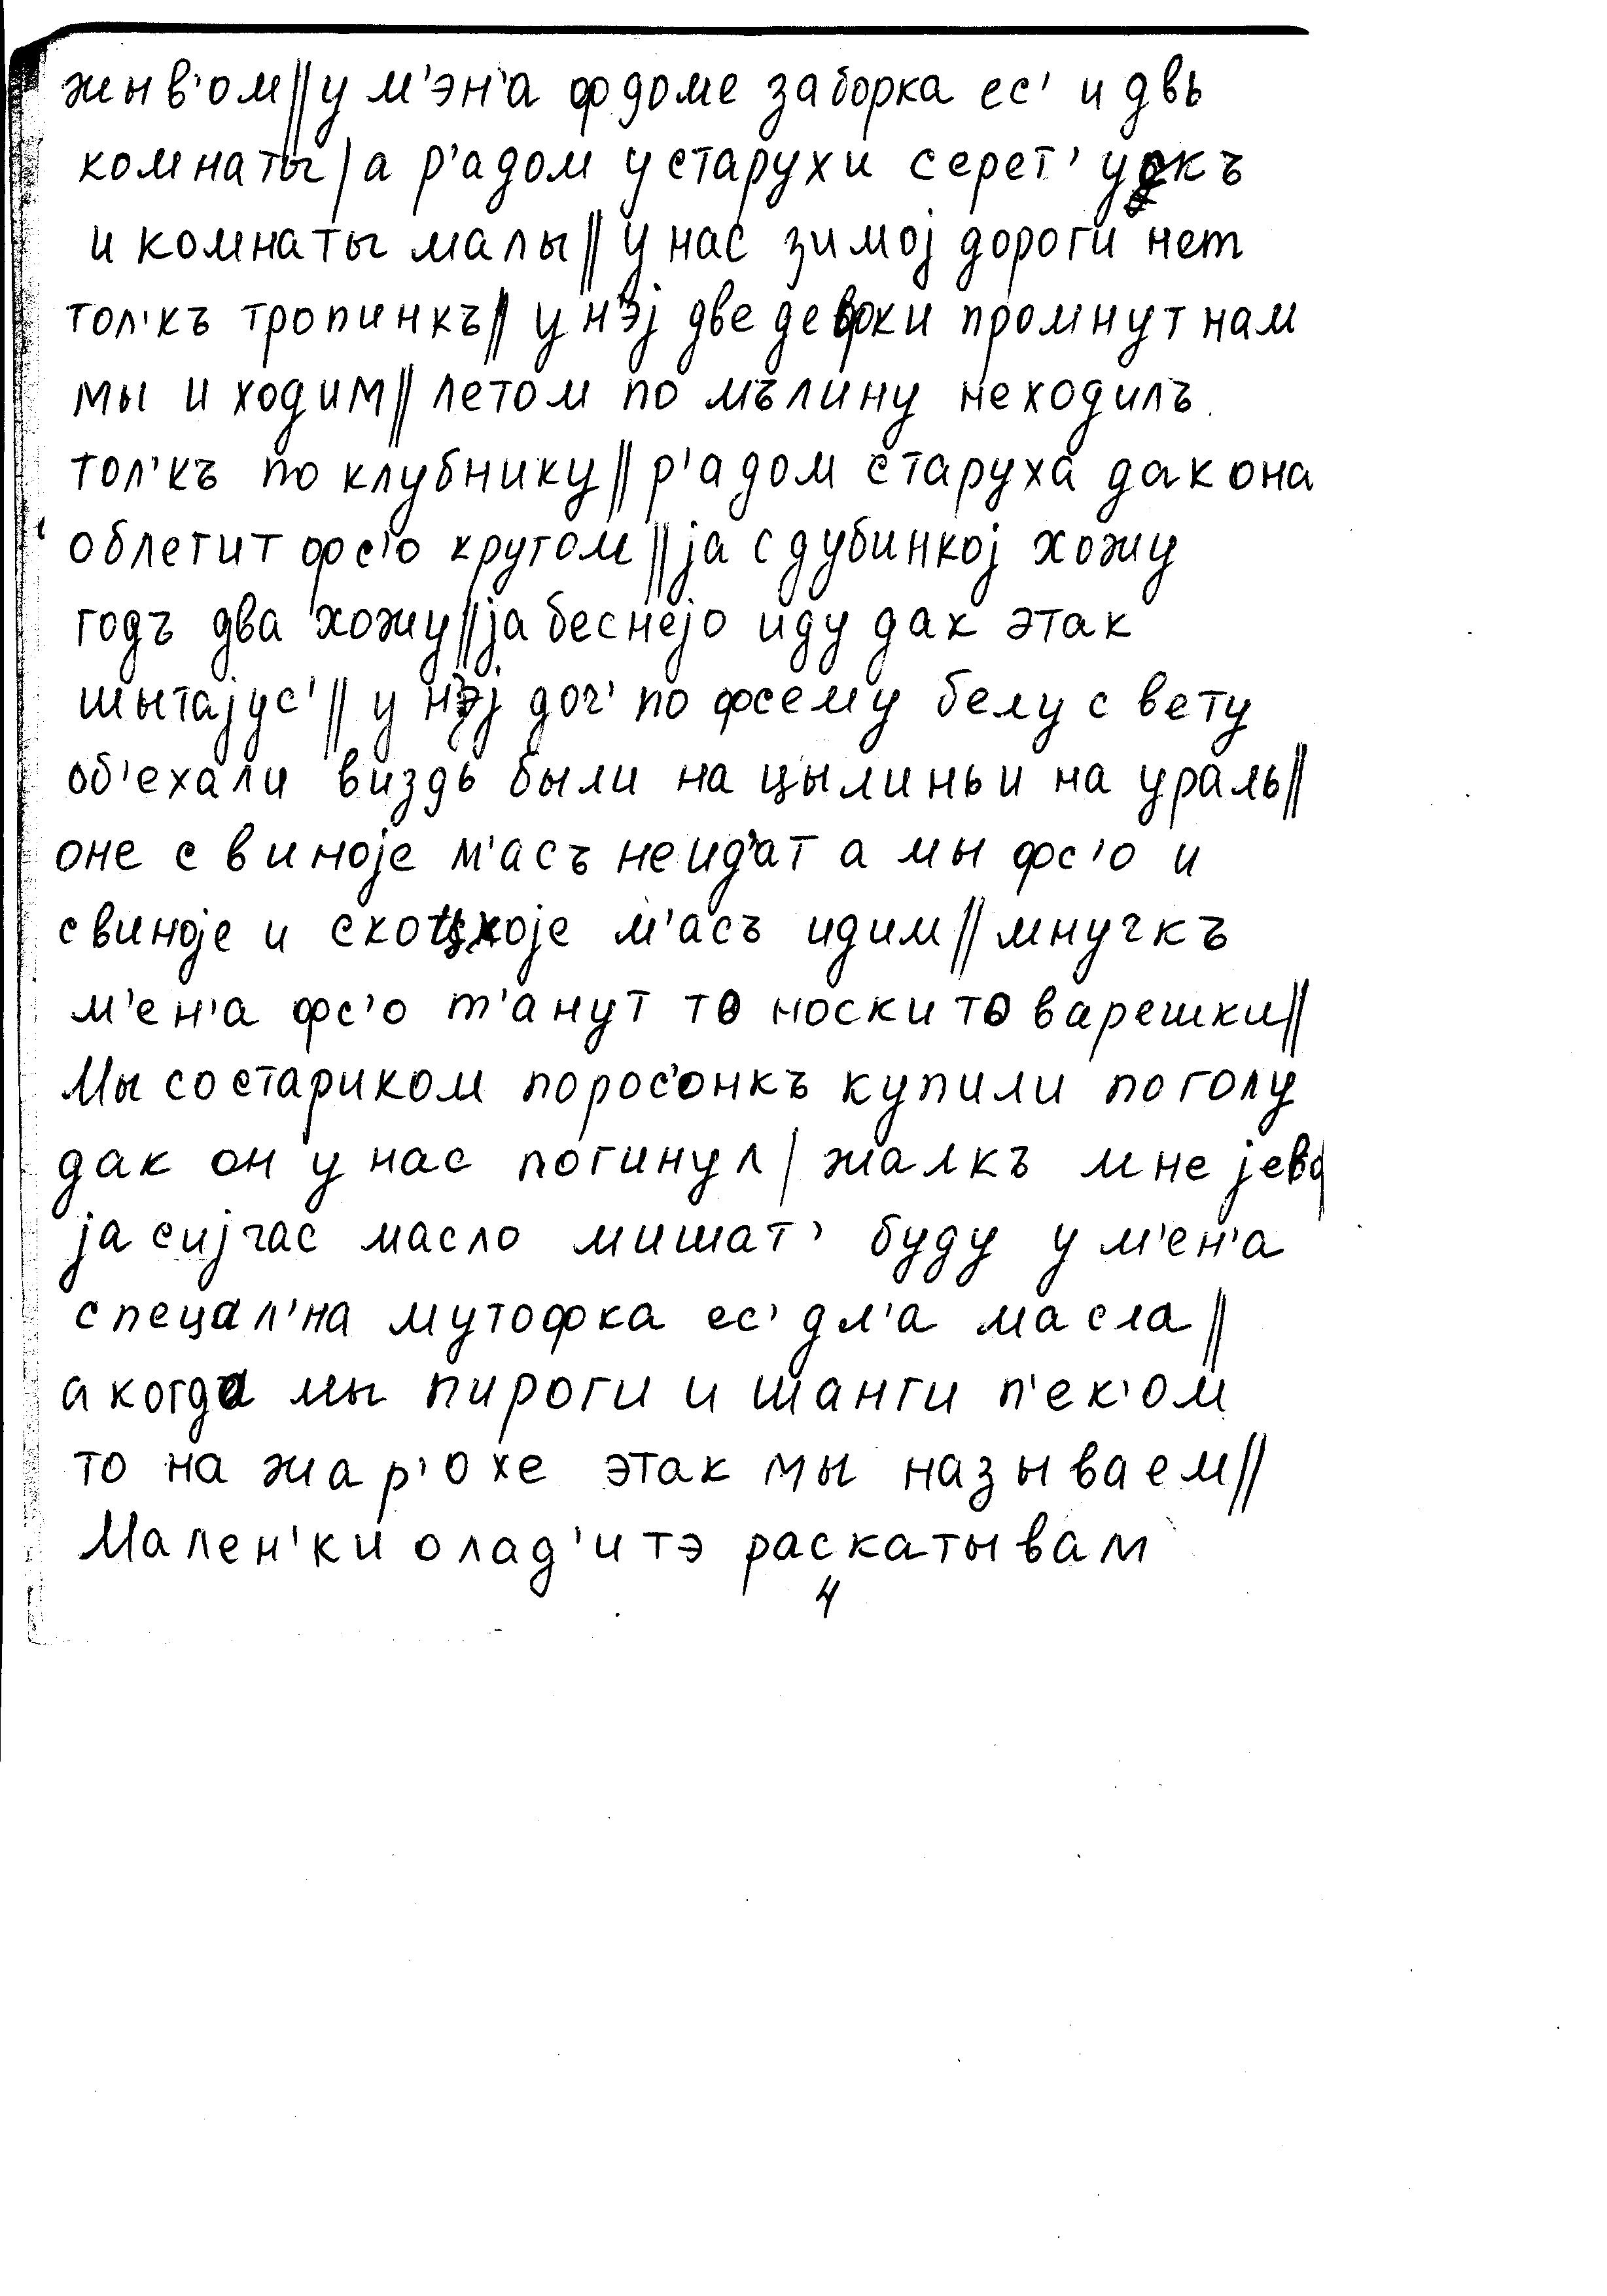 жыв'ом//у м'эн'а фдоме заборка ес' и двь
комнаты/а р'адом у старухи серет' укъ
и комнаты малы//у нас зимој дороги нет
тол'къ тропинкъ//у н'эј две дефки промнут нам
мы и ходим//летом по мълину неходилъ
тол'къ по клубнику//р'адом старуха дак она
облетит фс'о кругом//ја с дубинкој хожу
годъ два хожу//ја беснејо иду дак этак
шытајус'//у н'эј доч' по фсему белу свету
об'ехали виздь были на цылиньи на ураль//
оне свиноје м'асъ неид'ат а мы фс'о и
свиноје и скоцкоје м'асъ идим//мнучкъ
м'ен'а фс'о т'анут то носки то варешки//
Мы со стариком порос'онкъ купили по голу
дак он у нас погинул/жалкъ мне јево
ја сијчас масло мишат' буду у м'ен'а
специал'на мутофка ес' дл'а масла//
а когда мы пироги и шанги п'ек'ом
то на жар'охе этак мы называем//
Мален'ки олад'и тэ раскатывам
4